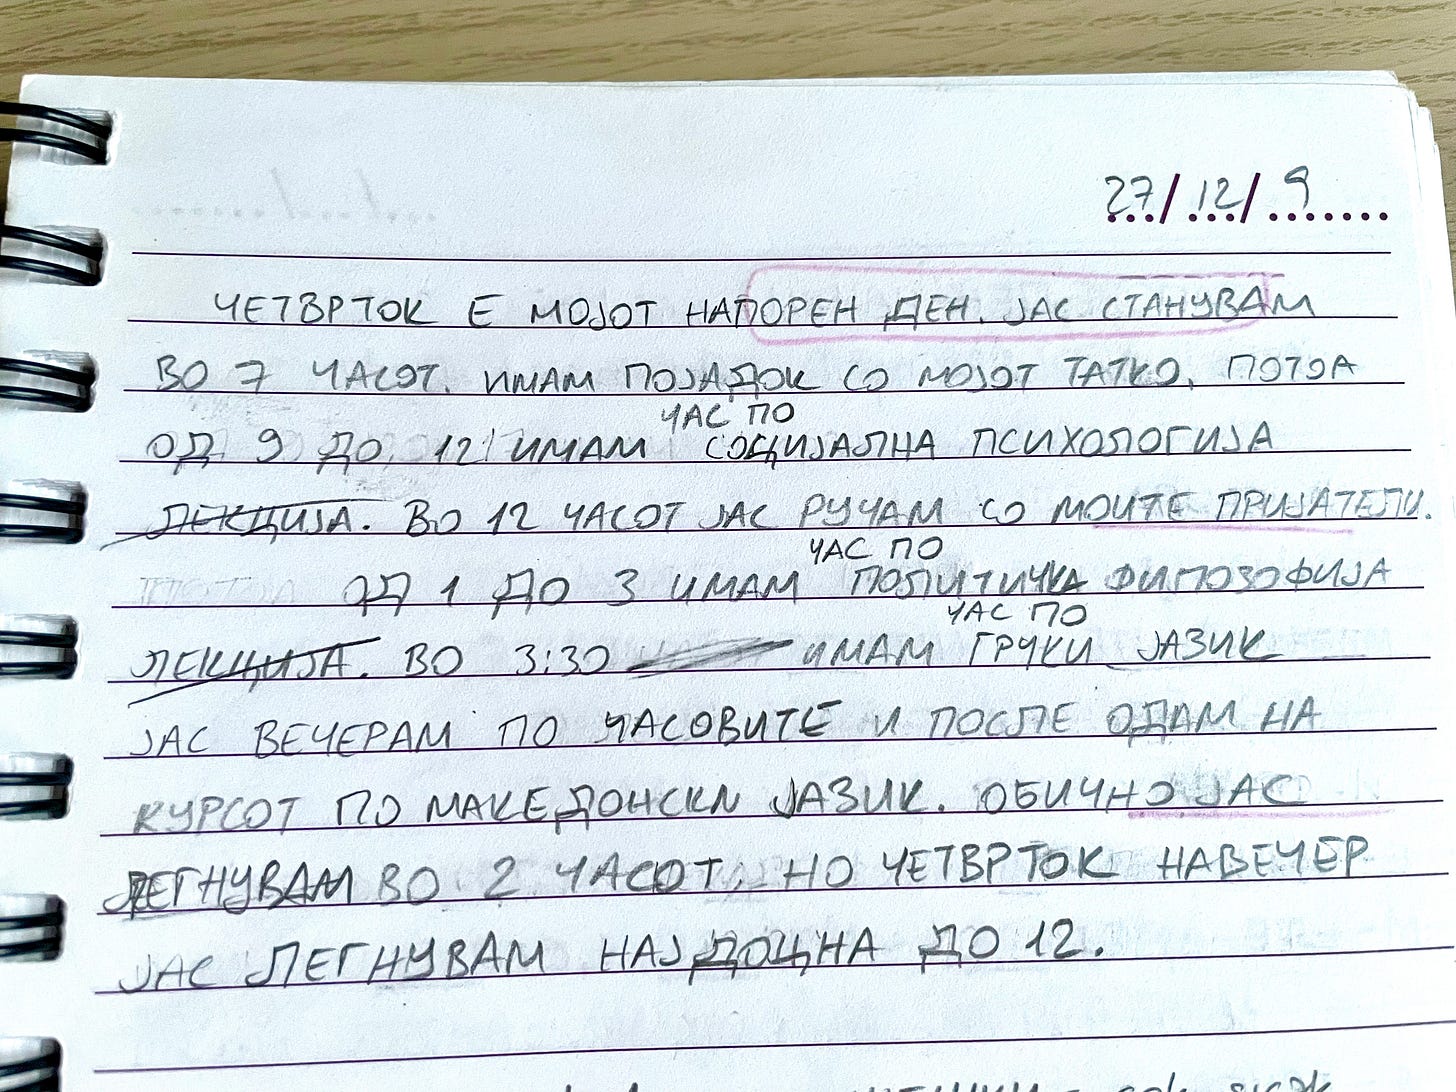 27/12/9
ЧЕТВРТОК Е МОЈОТ НАПОРЕН ДЕН. ЈАС СТАНУВАМ
ВО 7 ЧАСОТ. ИМАМ ПОЈАДОК СО МОЈОТ ТАТКО, ПОТОА
ЧАС ПО
ОД 9 ДО 12 ИМАМ СОЦИЈАЛНА ПСИХОЛОГИЈА
ЛЕКЦИЈА. ВО 12 ЧАСОТ ЈАС РУЧАМ СО МОИТЕ ПРИЈАТЕЛИ.
ЧАС ПО
ОД 1 ДО 3 ИМАМ ПОЛИТИЧКА ФИЛОЗОФИЈА
ЧАС ПО
ЛЕКЦИЈА. ВО 3:30 ИМАМ ГРЧКИ ЈАЗИК
ЈАС ВЕЧЕРАМ ПО ЧАСОВИТЕ И ПОСЛЕ ОДАМ НА
КУРСОТ ПО МАКЕДОНСКИ ЈАЗИК. ОБИЧНО ЈАС
ЛЕГНУВАМ ВО 2 ЧАСОТ, НО ЧЕТВРТОК НАВЕЧЕР
ЈАС ЛЕГНУВАМ НАЈДОЦНА ДО 12.